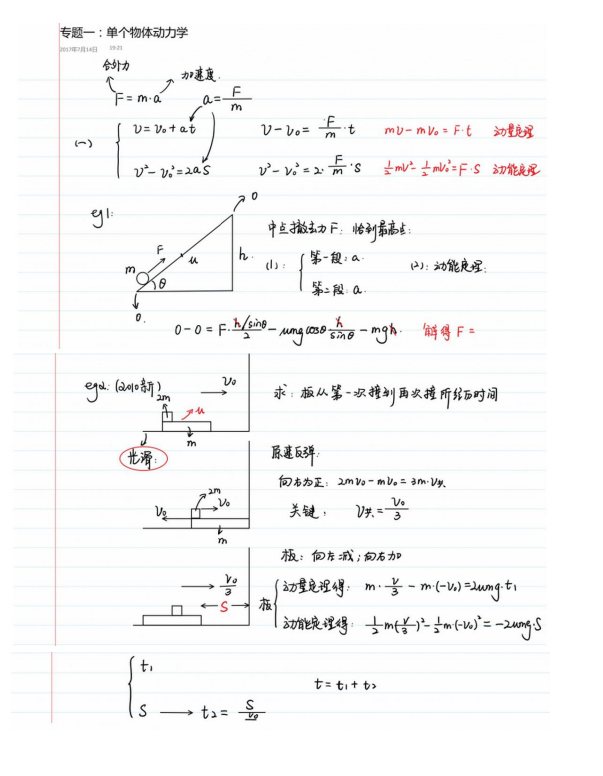 专题一：单个物体动力学
2017年7月14日 19:21
合外力
加速度.
F = m·a a = F/m
(一)
v = v₀ + at v - v₀ = F/m · t mv - mv₀ = F·t 动量定理
v² - v₀² = 2aS v² - v₀² = 2· F/m ·S ½mv² - ½mv₀² = F·S 动能定理
eg1:
0
中点撤去力F: 恰到最高点:
F
u
h.
m
θ
0.
(1): 第一段: a.
第二段: a.
(2): 动能定理:
0-0 = F· (h/sinθ)/2 - umg cosθ h/sinθ - mgh. 解得 F =
eg2: (2010新)
v₀
2m
u
m
求: 板从第一次撞到再次撞所经历时间
光滑:
原速反弹:
2m
v₀
v₀
m
向右为正: 2mv₀ - mv₀ = 3m·v共
关键: v共 = v₀/3
板: 向左减; 向右加
v₀/3
S
板
动量定理得: m· v/3 - m·(-v₀) = 2umg·t₁
动能定理得: ½m(v/3)² - ½m·(-v₀)² = -2umg·S
t₁
t = t₁ + t₂
S → t₂ = S/v₀